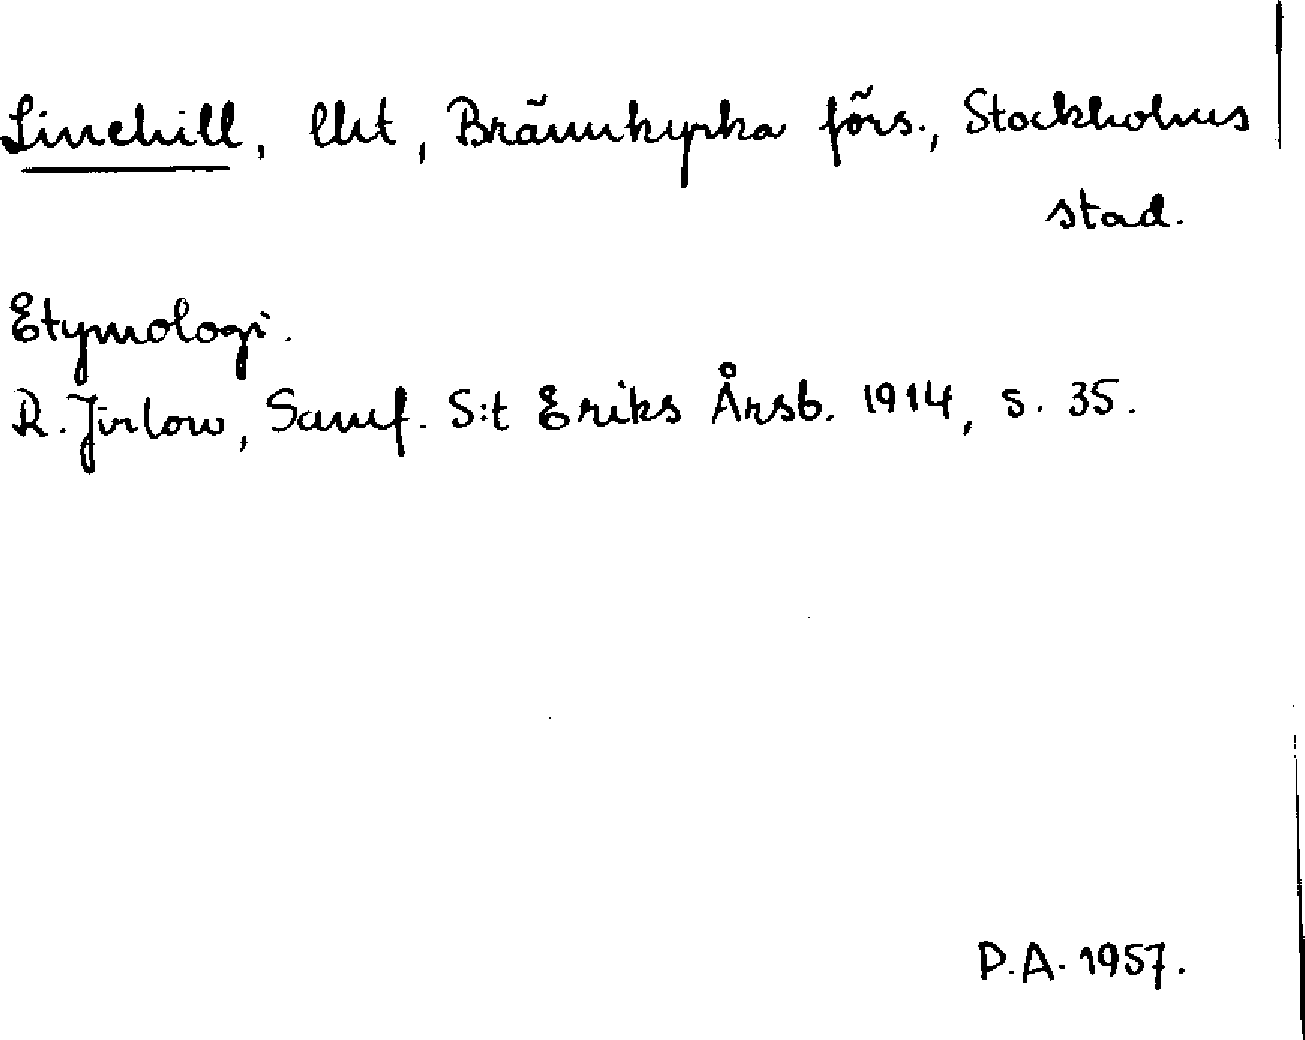 Linehill, lht, Brännkyrka förs., Stockholms
stad.
Etymologi.
R. Jirlow, Samf. S:t Eriks Årsb. 1914, s. 35.
P.A. 1957.